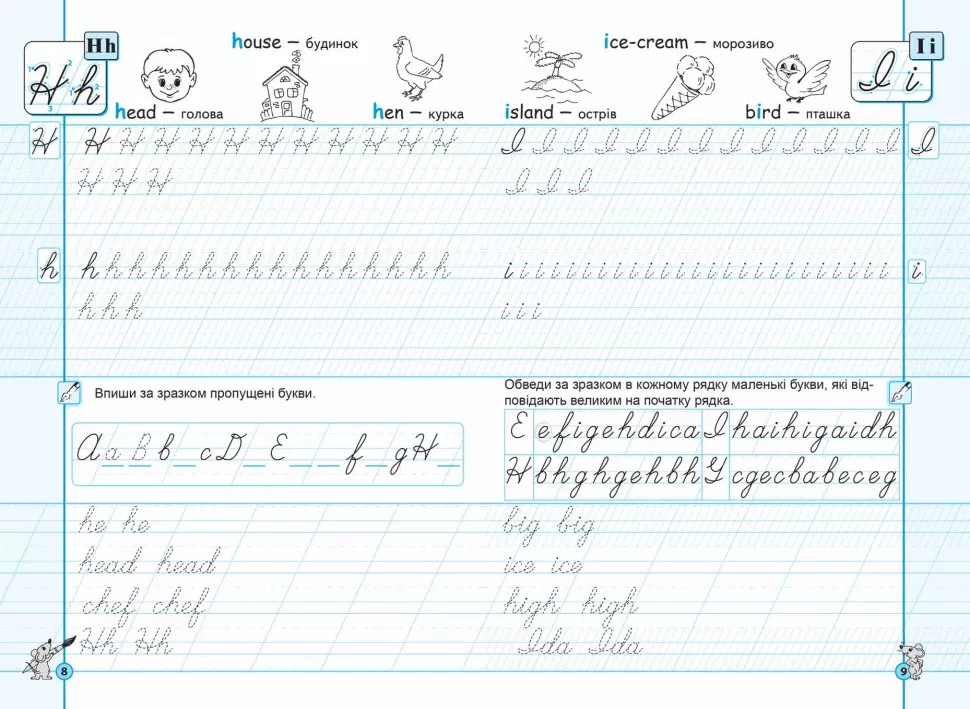 Hh
house – будинок
H h
head – голова
hen – курка
H H H H H H H H H H H H
H H H
h h h h h h h h h h h h h h h h
h h h
Впиши за зразком пропущені букви.
A a B b _ c D _ E _ _ f _ g H _
he he
head head
chef chef
Hh Hh
8
ice-cream – морозиво
Ii
I i
island – острів
bird – пташка
I I I I I I I I I I I I I I
I I I
i i i i i i i i i i i i i i i i i i i i i i i i i
i i i
Обведи за зразком в кожному рядку маленькі букви, які від-
повідають великим на початку рядка.
E efigehdica I haihigaidh
H bhghgehbh G cgecbabeceg
big big
ice ice
high high
Ida Ida
9